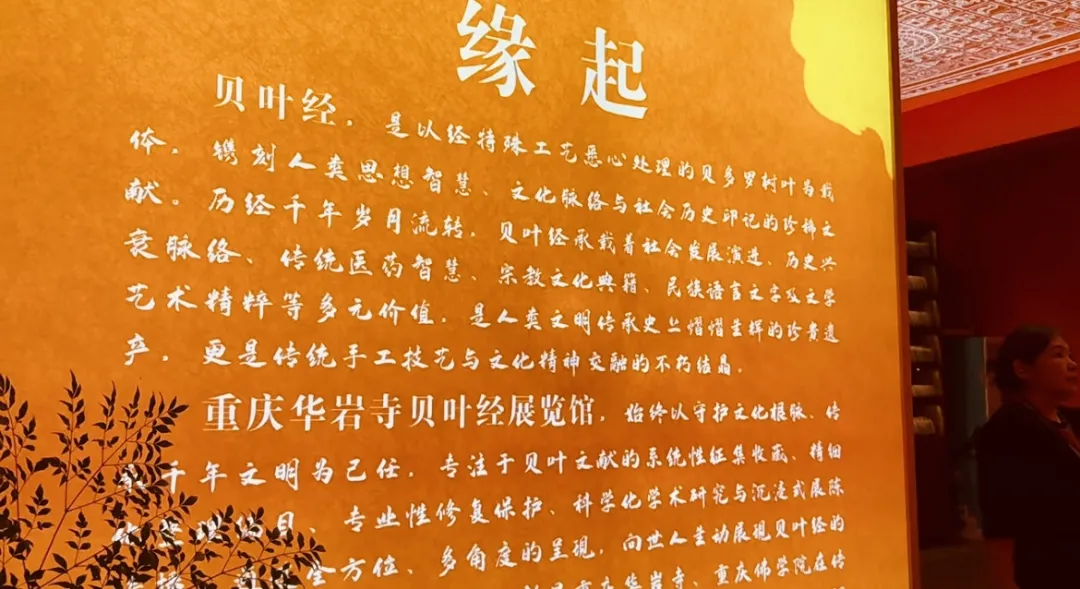 缘起
贝叶经，是以经特殊工艺悉心处理的贝多罗树叶为载
体，镌刻人类思想智慧、文化脉络与社会历史印记的珍稀文
献。历经千年岁月流转，贝叶经承载着社会发展演进、历史兴
衰脉络、传统医药智慧、宗教文化典籍、民族语言文字及文学
艺术精粹等多元价值，是人类文明传承史上熠熠生辉的珍贵遗
产，更是传统手工技艺与文化精神交融的不朽结晶。
重庆华岩寺贝叶经展览馆，始终以守护文化根脉、传
千年文明为己任，专注于贝叶文献的系统性征集收藏、精细
整理编目、专业性修复保护、科学化学术研究与沉浸式展陈
全方位、多角度的呈现，向世人生动展现贝叶经的
重庆华岩寺、重庆佛学院在传